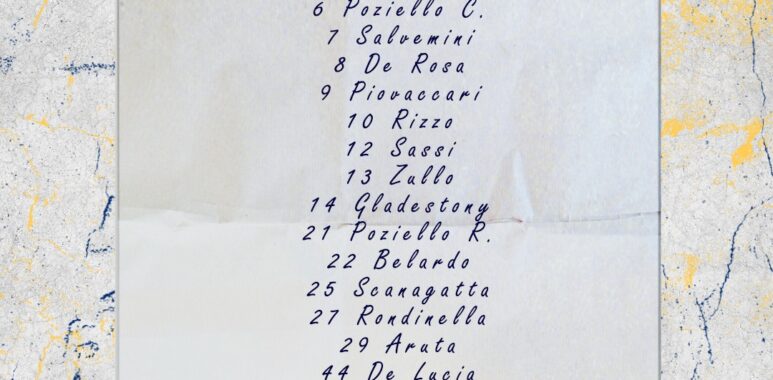 6 Poziello C.
7 Salvemini
8 De Rosa
9 Piovaccari
10 Rizzo
12 Sassi
13 Zullo
14 Gladestony
21 Poziello R.
22 Belardo
25 Scanagatta
27 Rondinella
29 Aruta
44 De Lucia